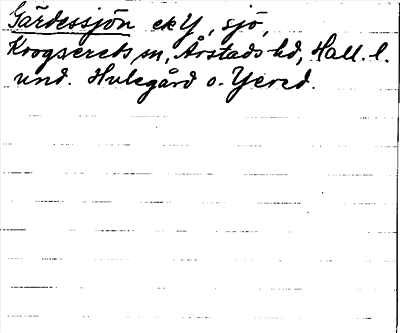 Gärdessjön ek Y, sjö,
Krogsereds sn, Årstads hd, Hall. l.
und. Hulegård o. Yered.